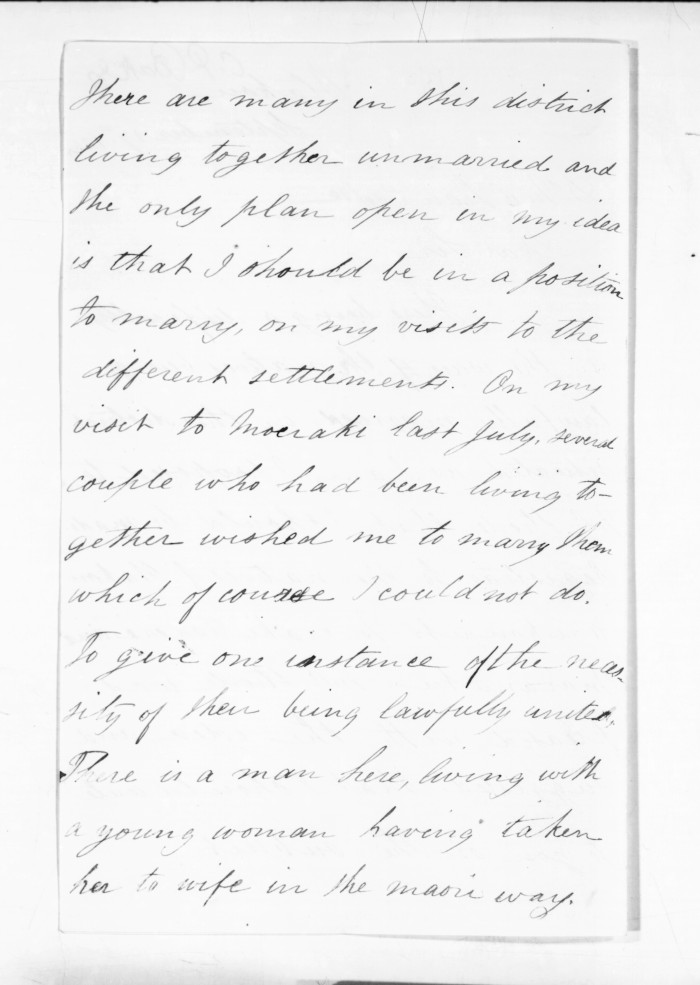 There are many in this district
living together unmarried and
the only plan open in my idea
is that I should be in a position
to marry, on my visits to the
different settlements. On my
visit to Moeraki last July, several
couple who had been living to-
gether wished me to marry them
which of course I could not do.
To give one instance of the neces-
sity of their being lawfully united.
There is a man here, living with
a young woman having taken
her to wife in the maori way.